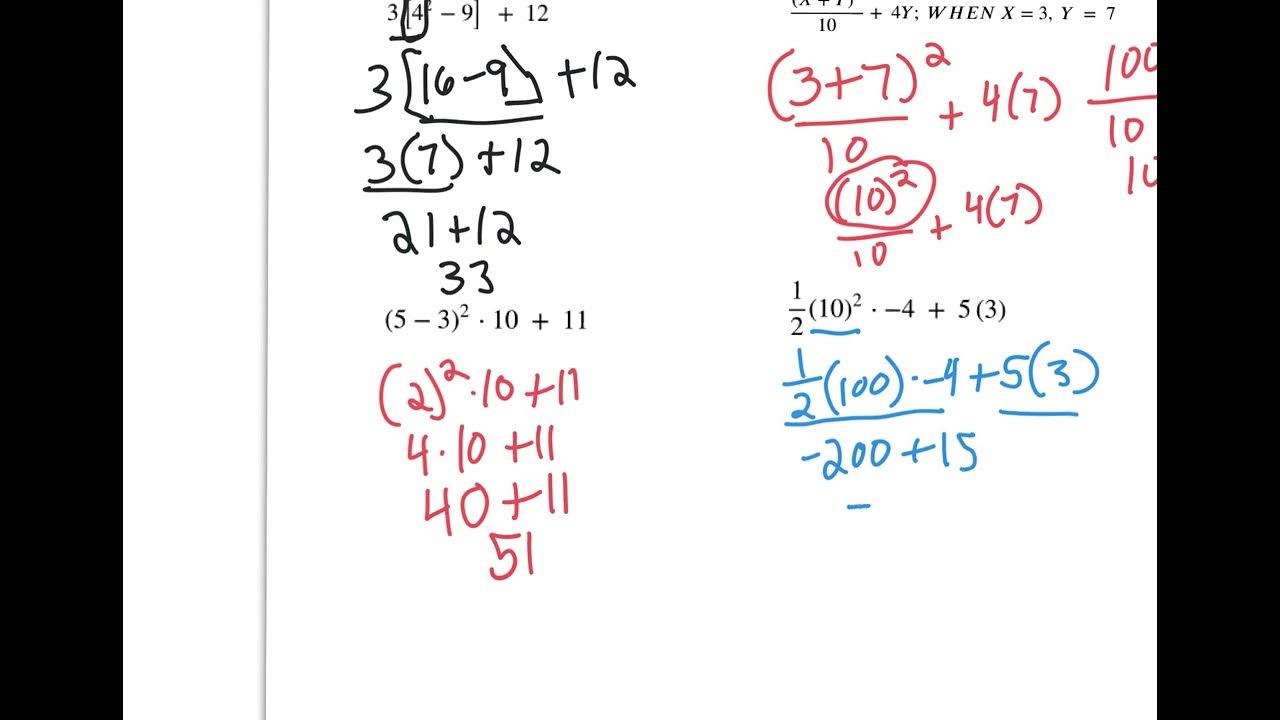 3[4² − 9] + 12
3[16-9] +12
3(7) +12
21+12
33
(5 − 3)² · 10 + 11
(2)² · 10 + 11
4 · 10 + 11
40 + 11
51
10 + 4Y; WHEN X = 3, Y = 7
(3+7)²
10 + 4(7)
(10)²
10 + 4(7)
100
10
10
1/2 (10)² · −4 + 5(3)
1/2 (100) · -4 + 5(3)
-200 + 15
-